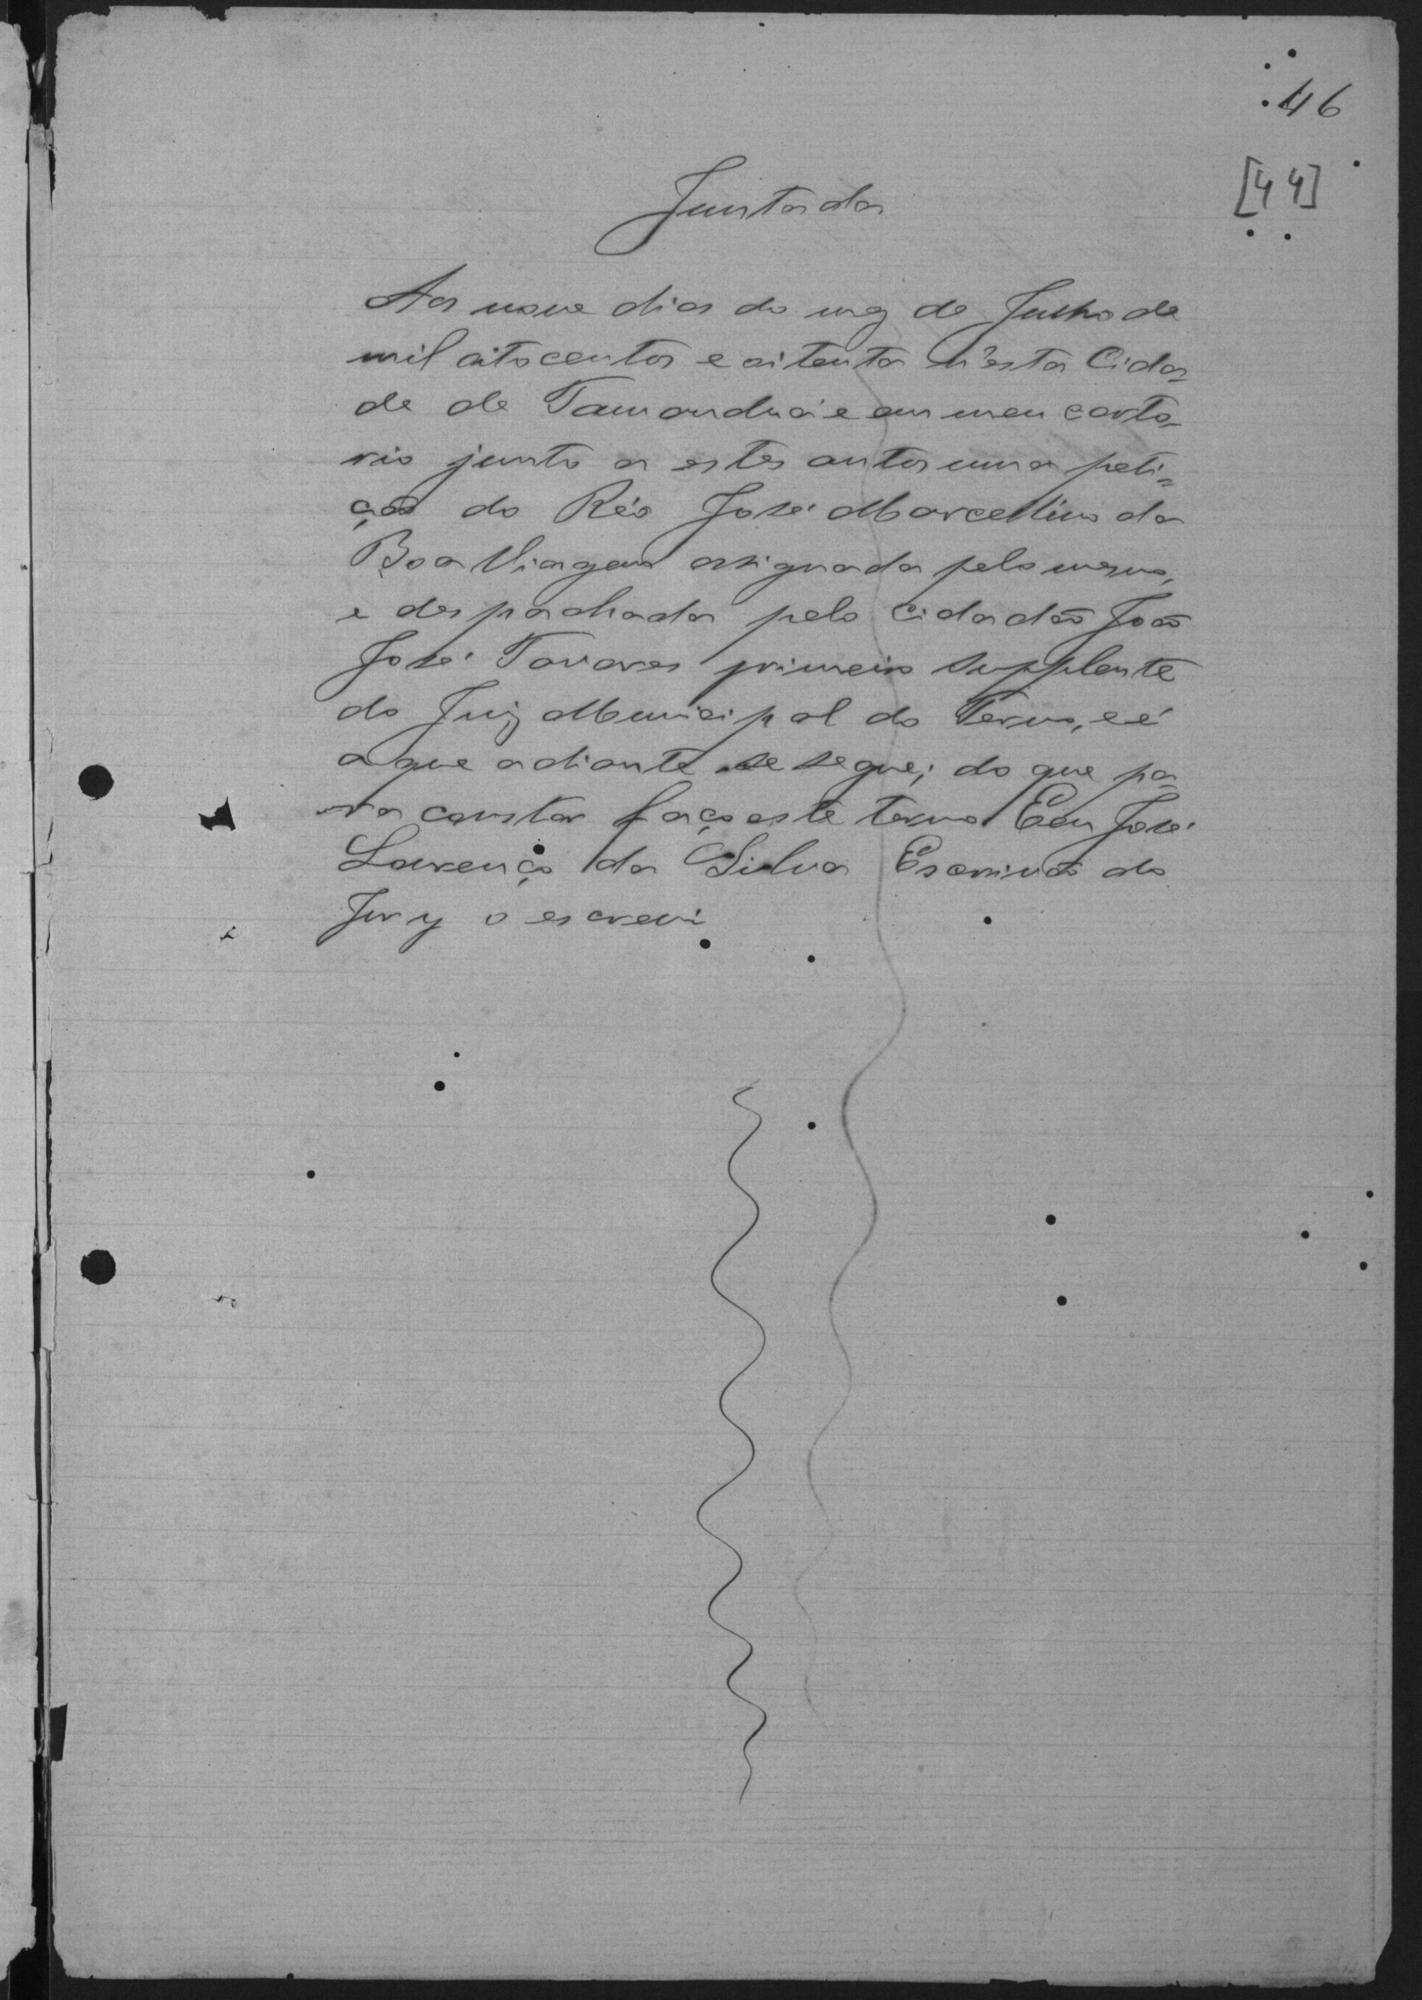 46
[44]
Juntada
Aos nove dias do mez de Julho de
mil oitocentos e oitenta n'esta Cida=
de de Tamanduá e em meu carto-
rio junto a estes autos uma peti=
ção do Réo José Marcellino da
Boa Viagem assignada pelo mesmo,
e despachada pelo cidadão João
José Tavares primeiro supplente
do Juiz Municipal do Termo, e é
a que adiante se segue; do que pa=
ra constar faço este termo Eu José
Lourenço da Silva Escrivão do
Jury o escrevi